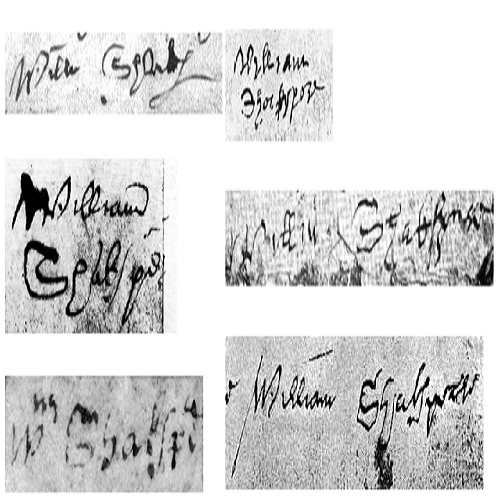 Willm Shakp
William
Shaksper
William
Shakspe
Willm Shakspere
Wm Shakspe
William Shakspeare